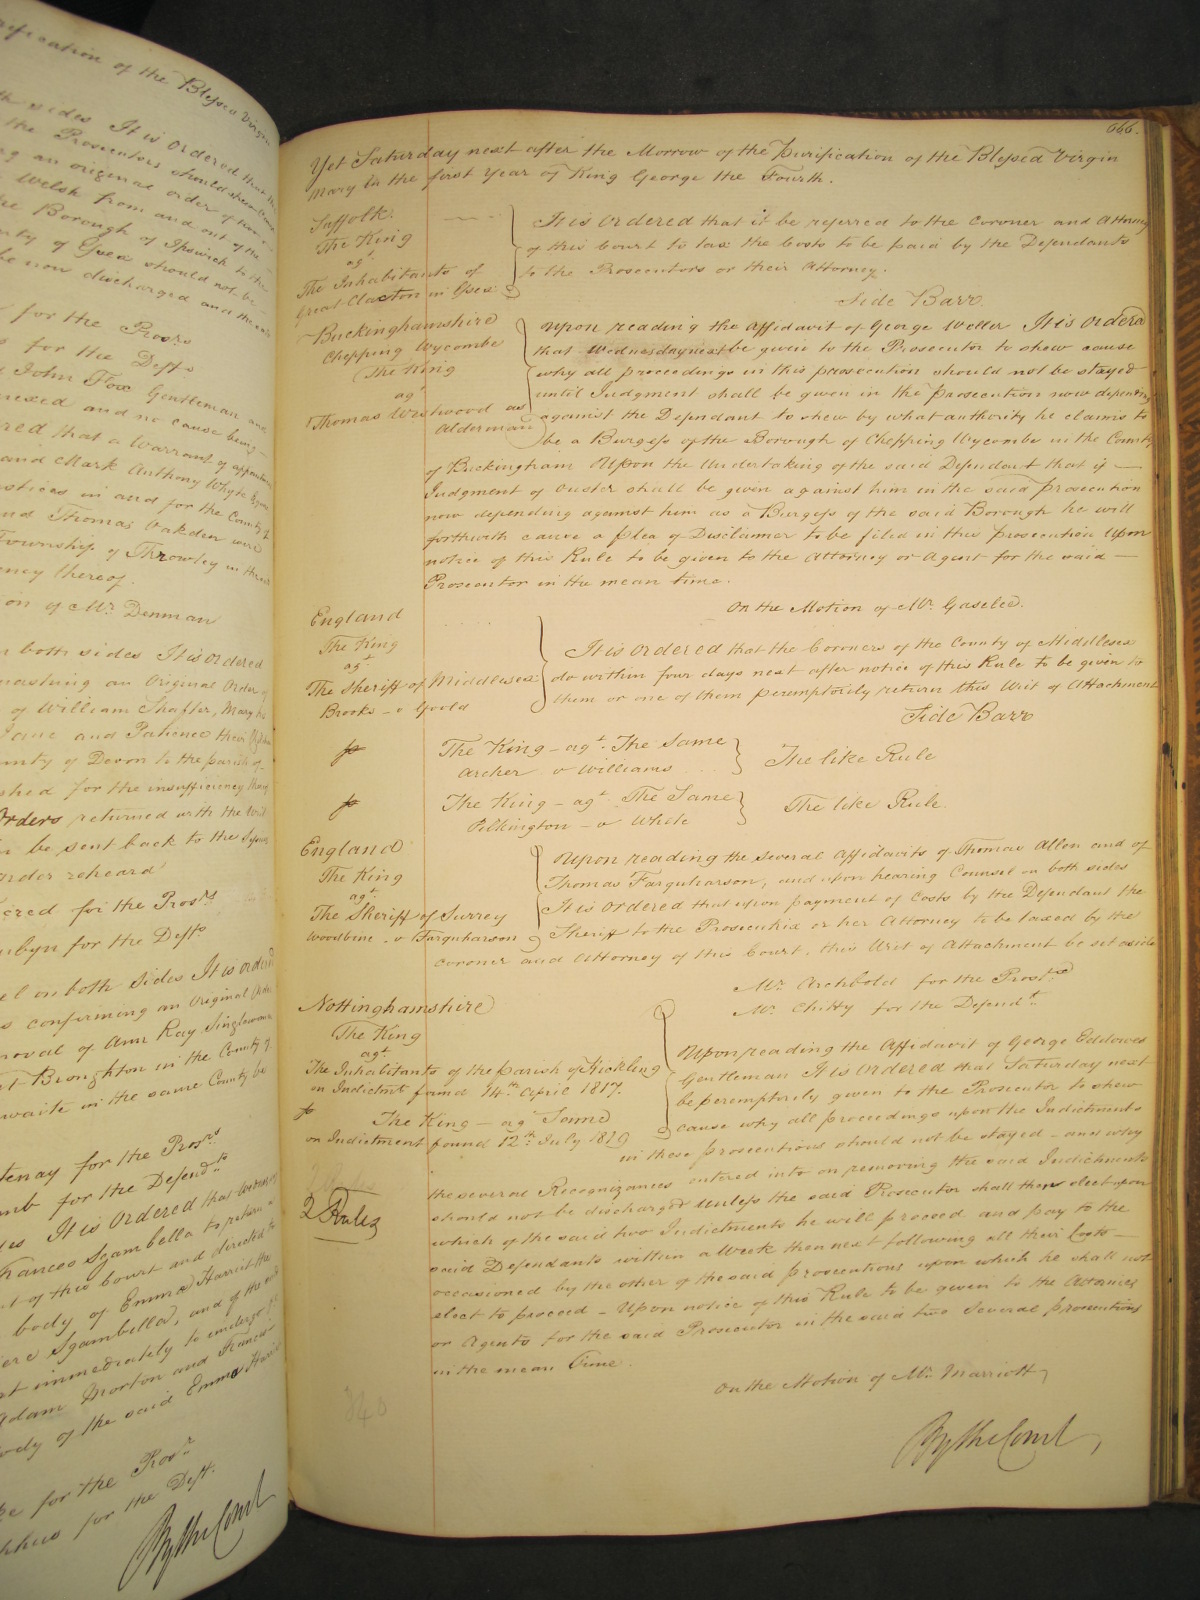 rification of the Blessed Virgin
th sides It is ordered that the
the Prosecutors should
ng an original order of
Welsh from and out of the
he Borough of Ipswich to the
nty of Essex should not be
be now discharged and the
for the Prosrs
for the Defts
John Fox Gentleman and
and no cause being
red that a Warrant of
and Mark Anthony Whyte
ustices in and for the County of
nd Thomas Oakden were
Township of Throwley in
ency thereof.
on of Mr. Denman
n both sides It is Ordered
uashing an Original Order of
of William Shapter, Mary his
Jane and Patience their
unty of Devon to the parish of
shed for the insufficiency
Orders returned with the Writ
be sent back to the
order reheard
for the Prosrs
for the Defts
el on both sides It is ordered
s confirming an Original Order
moval of Ann Ray Singlewoman
Broughton in the County of
waite in the same County be
tenay for the Prosrs
mb for the Defendts
es It is Ordered that
Frances Sgambella to return a
t of this Court and directed to
body of Emma Harriet the
Sgambella, and of the
rt immediately to undergo &c
Adam Morton and Frances
ody of the said Emma Harriet
ke for the Prosr.
for the Deft.
By the Court
666.
Yet Saturday next after the Morrow of the Purification of the Blessed Virgin
Mary In the first Year of King George the Fourth.
Suffolk.
The King
agt.
The Inhabitants of
Great Clacton in Essex
It is Ordered that it be referred to the Coroner and Attorney
of this Court to tax the Costs to be paid by the Defendants
to the Prosecutors or their Attorney.
Side Barr.
Buckinghamshire
Chepping Wycombe
The King
ag
Thomas Westwood as
Alderman
Upon reading the Affidavit of George Weller It is Ordered
that Wednesday next be given to the Prosecutor to shew cause
why all proceedings in this prosecution should not be stayed
until Judgment shall be given in the Prosecution now depending
against the Defendant to shew by what authority he claims to
be a Burgess of the Borough of Chepping Wycombe in the County
of Buckingham Upon the Undertaking of the said Defendant that if
Judgment of Ouster shall be given against him in the said prosecution
now depending against him as a Burgess of the said Borough he will
forthwith cause a plea of Disclaimer to be filed in this prosecution Upon
notice of this Rule to be given to the Attorney or Agent for the said
Prosecutor in the mean time.
On the Motion of Mr. Gaselee.
England
The King
agt
The Sheriff of Middlesex
Brooks v Goold
It is Ordered that the Coroners of the County of Middlesex
do within four days next after notice of this Rule to be given to
them or one of them peremptorily return this Writ of Attachment
Side Barr
The King agt. The Same
Archer v Williams
The like Rule
The King agt. The Same
Pilkington v While
The like Rule.
England
The King
agt
The Sheriff of Surrey
Woodbine v Farquharson
Upon reading the several Affidavits of Thomas Allen and of
Thomas Farquharson, and upon hearing Counsel on both sides
It is Ordered that upon payment of Costs by the Defendant the
Sheriff to the Prosecutrix or her Attorney to be taxed by the
Coroner and Attorney of this Court, this Writ of Attachment be set aside
Mr. Archbold for the Prostrx
Mr. Chitty for the Defendt.
Nottinghamshire
The King
agt
The Inhabitants of the parish of Hickling
on Indictmt found 14th April 1817.
The King ag Same
on Indictment found 12th July 1819
Upon reading the Affidavit of George Eddowes
Gentleman It is Ordered that Saturday next
be peremptorily given to the Prosecutor to shew
cause why all proceedings upon the Indictments
in these prosecutions should not be stayed and why
the several Recognizances entered into on removing the said Indictments
should not be discharged Unless the said Prosecutor shall then elect upon
which of the said two Indictments he will proceed and pay to the
said Defendants within a Week then next following all their Costs
occasioned by the other of the said prosecutions upon which he shall not
elect to proceed Upon notice of this Rule to be given to the Attornies
or Agents for the said Prosecutor in the said two Several prosecutions
in the mean time.
2 Rules
On the Motion of Mr. Marriott
By the Court